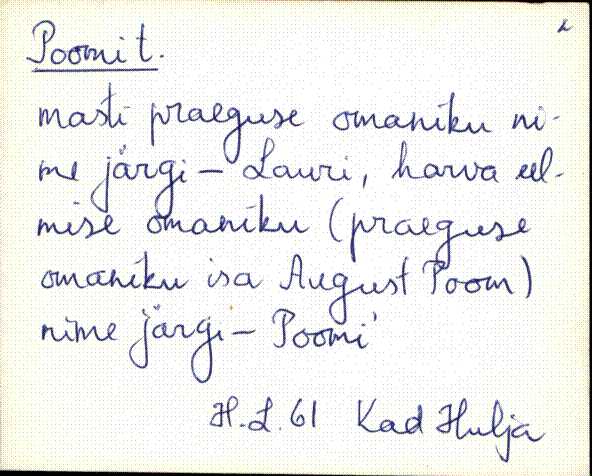 2
Poomi t.
masti praeguse omaniku ni-
me järgi – Lauri, harva eel-
mise omaniku (praeguse
omaniku isa August Poom)
nime järgi – Poomi
H.L. 61 Kad Hulja